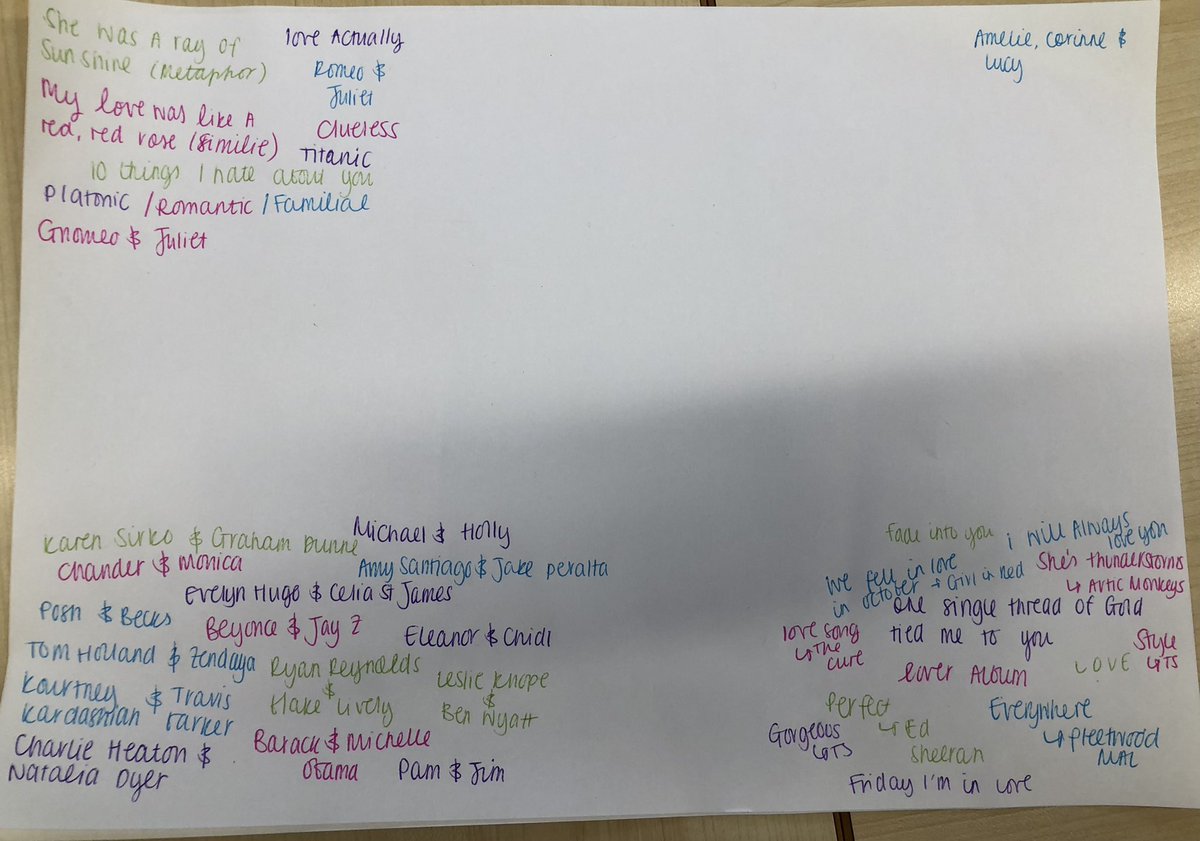 She was A ray of
Sunshine (Metaphor)
My love was like A
red, red rose (Similie)
10 things I hate about you
Platonic / Romantic / Familial
Gnomeo & Juliet
love Actually
Romeo &
Juliet
Clueless
Titanic
Amelie, Corinne &
Lucy
Karen Sirko & Graham Dunne
Michael & Holly
Chander & Monica
Amy Santiago & Jake Peralta
Evelyn Hugo & Celia St James
Posh & Becks
Beyonce & Jay Z
Eleanor & Chidi
Tom Holland & Zendaya
Ryan Reynolds
&
Blake Lively
Leslie Knope
&
Ben Wyatt
Kourtney & Travis
Kardashian Barker
Charlie Heaton &
Natalia Dyer
Barack & Michelle
Obama
Pam & Jim
fade into you
i will Always
love you
we fell in love
in october → Girl in Red
She's thunderstorms
↳ Artic Monkeys
one single thread of Gold
tied me to you
love song
↳ The
cure
Style
↳ TS
lover Album
LOVE
Perfect
↳ Ed
Sheeran
Everywhere
↳ Fleetwood
MAC
Gorgeous
↳ TS
Friday I'm in love